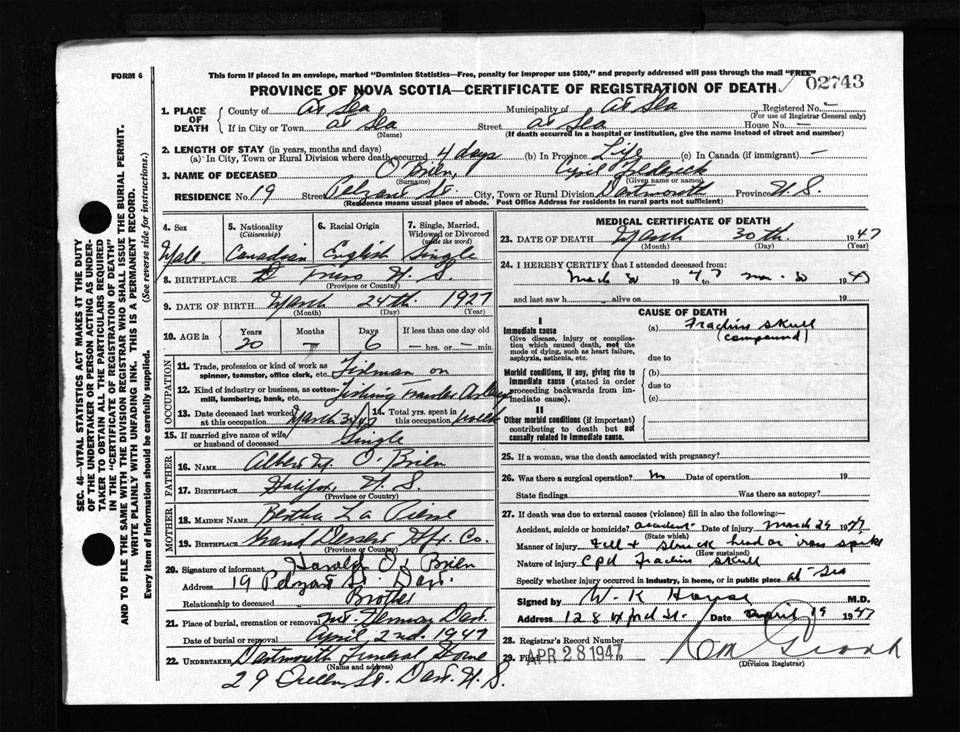 FORM 6
This form if placed in an envelope, marked "Dominion Statistics—Free, penalty for improper use $300," and properly addressed will pass through the mail "FREE"
02743
PROVINCE OF NOVA SCOTIA—CERTIFICATE OF REGISTRATION OF DEATH
SEC. 46—VITAL STATISTICS ACT MAKES IT THE DUTY
OF THE UNDERTAKER OR PERSON ACTING AS UNDER-
TAKER TO OBTAIN ALL THE PARTICULARS REQUIRED
IN THE "CERTIFICATE OF REGISTRATION OF DEATH"
AND TO FILE THE SAME WITH THE DIVISION REGISTRAR WHO SHALL ISSUE THE BURIAL PERMIT.
WRITE PLAINLY WITH UNFADING INK. THIS IS A PERMANENT RECORD.
Every item of information should be carefully supplied. (See reverse side for instructions.)
1. PLACE OF DEATH
County of At Sea Municipality of At Sea Registered No. –
(For use of Registrar General only)
If in City or Town at Sea Street at Sea House No. –
(Name) (If death occurred in a hospital or institution, give the name instead of street and number)
2. LENGTH OF STAY (in years, months and days)
(a) In City, Town or Rural Division where death occurred 4 days (b) In Province Life (c) In Canada (if immigrant) –
3. NAME OF DECEASED O'Brien, Cyril Frederick
(Surname) (Given name or names)
RESIDENCE No. 19 Street St. City, Town or Rural Division Dartmouth Province N.S.
(Residence means usual place of abode. Post Office Address for residents in rural parts not sufficient)
4. Sex Male
5. Nationality (Citizenship) Canadian
6. Racial Origin English
7. Single, Married, Widowed or Divorced (write the word) Single
8. BIRTHPLACE N.S.
(Province or Country)
9. DATE OF BIRTH March 24th 1927
(Month) (Day) (Year)
10. AGE in Years 20 Months – Days 6 If less than one day old – hrs. or – min.
OCCUPATION
11. Trade, profession or kind of work as spinner, teamster, office clerk, etc. Fireman on
12. Kind of industry or business, as cotton-mill, lumbering, bank, etc. Fishing
13. Date deceased last worked at this occupation March 30/47
14. Total yrs. spent in this occupation 1 week
15. If married give name of wife or husband of deceased Single
FATHER
16. NAME Albert M. O'Brien
17. BIRTHPLACE Halifax N.S.
(Province or Country)
MOTHER
18. MAIDEN NAME Bertha La Pierre
19. BIRTHPLACE Grand Desert Hfx. Co.
(Province or Country)
20. Signature of informant Harold O'Brien
Address 19 St. Dart.
Relationship to deceased Brother
21. Place of burial, cremation or removal Mt. Hermon Dart.
Date of burial or removal April 2nd. 1947
22. UNDERTAKER Dartmouth Funeral Home
(Name and address)
29 Queen St. Dart. N.S.
MEDICAL CERTIFICATE OF DEATH
23. DATE OF DEATH March 30th. 1947
(Month) (Day) (Year)
24. I HEREBY CERTIFY that I attended deceased from:
March 30 1947 to mar 30 1947
and last saw h alive on 19
CAUSE OF DEATH
I
Immediate cause
Give disease, injury or complica-
tion which caused death, not the
mode of dying, such as heart failure,
asphyxia, asthenia, etc.
(a) Fracture skull
(compound)
due to
Morbid conditions, if any, giving rise to
immediate cause (stated in order
proceeding backwards from im-
mediate cause).
(b)
due to
(c)
II
Other morbid conditions (if important)
contributing to death but not
causally related to immediate cause.
25. If a woman, was the death associated with pregnancy?
26. Was there a surgical operation? no Date of operation 19
State findings Was there an autopsy?
27. If death was due to external causes (violence) fill in also the following:
Accident, suicide or homicide? accident Date of injury March 29 1947
(State which)
Manner of injury fell & struck head on iron spike
(How sustained)
Nature of injury CPD Fracture skull
Specify whether injury occurred in industry, in home, or in public place at Sea
Signed by W. K. House M.D.
Address Date april 19 1947
28. Registrar's Record Number
29. Filed APR 28 1947
(Division Registrar)